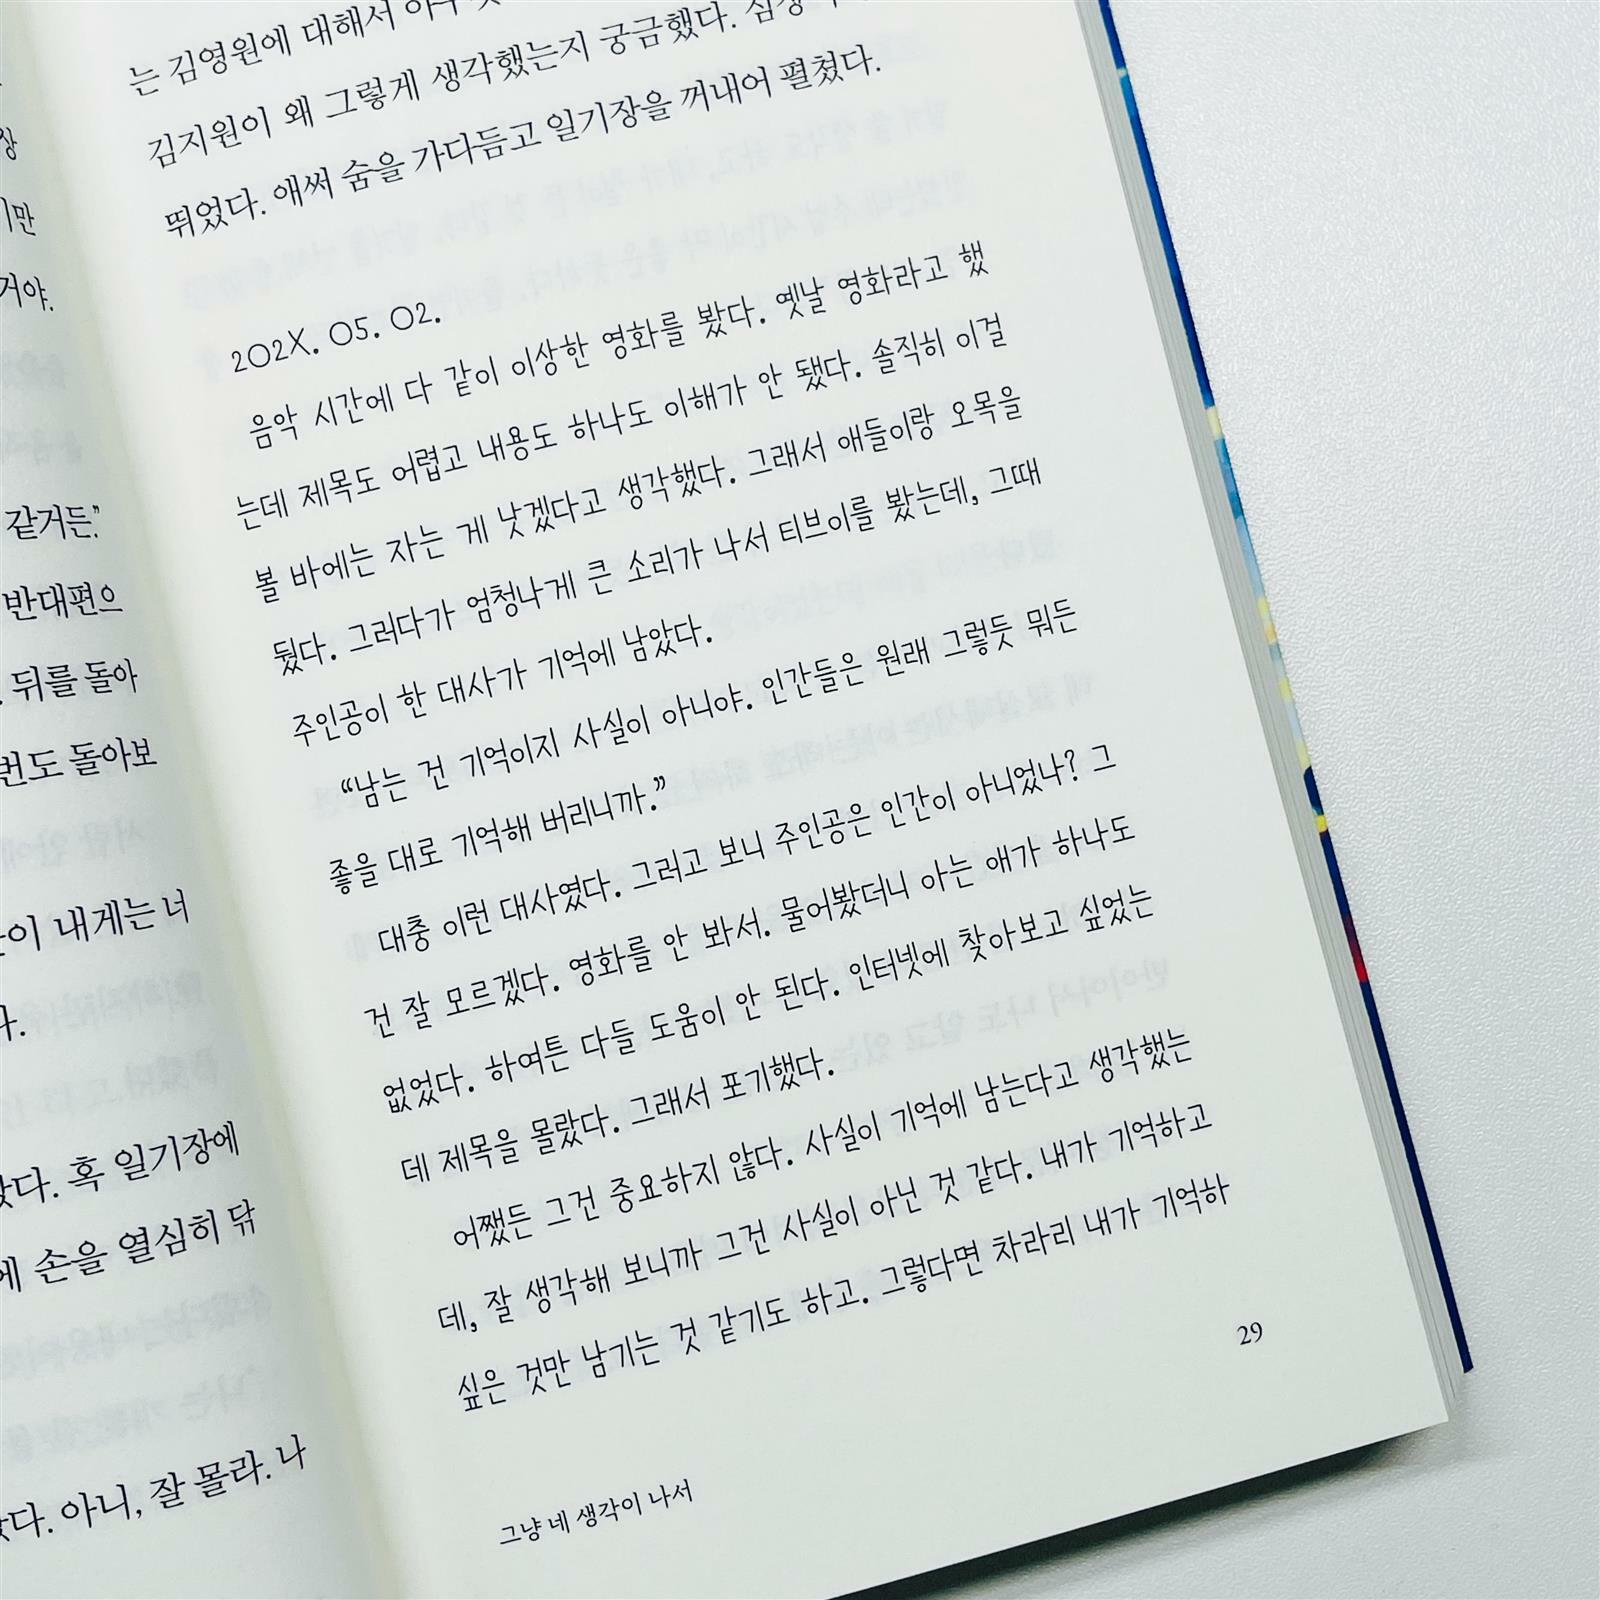 상
거야.
같거든.”
반대편으
뒤를 돌아
번도 돌아보
내게는 너
혹 일기장에
손을 열심히 닦
아니, 잘 몰라. 나
는 김영원에 대해서
김지원이 왜 그렇게 생각했는지 궁금했다.
뛰었다. 애써 숨을 가다듬고 일기장을 꺼내어 펼쳤다.
202X. 05. 02.
음악 시간에 다 같이 이상한 영화를 봤다. 옛날 영화라고 했
는데 제목도 어렵고 내용도 하나도 이해가 안 됐다. 솔직히 이걸
볼 바에는 자는 게 낫겠다고 생각했다. 그래서 애들이랑 오목을
뒀다. 그러다가 엄청나게 큰 소리가 나서 티브이를 봤는데, 그때
주인공이 한 대사가 기억에 남았다.
“남는 건 기억이지 사실이 아니야. 인간들은 원래 그렇듯 뭐든
좋을 대로 기억해 버리니까.”
대충 이런 대사였다. 그러고 보니 주인공은 인간이 아니었나? 그
건 잘 모르겠다. 영화를 안 봐서. 물어봤더니 아는 애가 하나도
없었다. 하여튼 다들 도움이 안 된다. 인터넷에 찾아보고 싶었는
데 제목을 몰랐다. 그래서 포기했다.
어쨌든 그건 중요하지 않다. 사실이 기억에 남는다고 생각했는
데, 잘 생각해 보니까 그건 사실이 아닌 것 같다. 내가 기억하고
싶은 것만 남기는 것 같기도 하고. 그렇다면 차라리 내가 기억하
29
그냥 네 생각이 나서